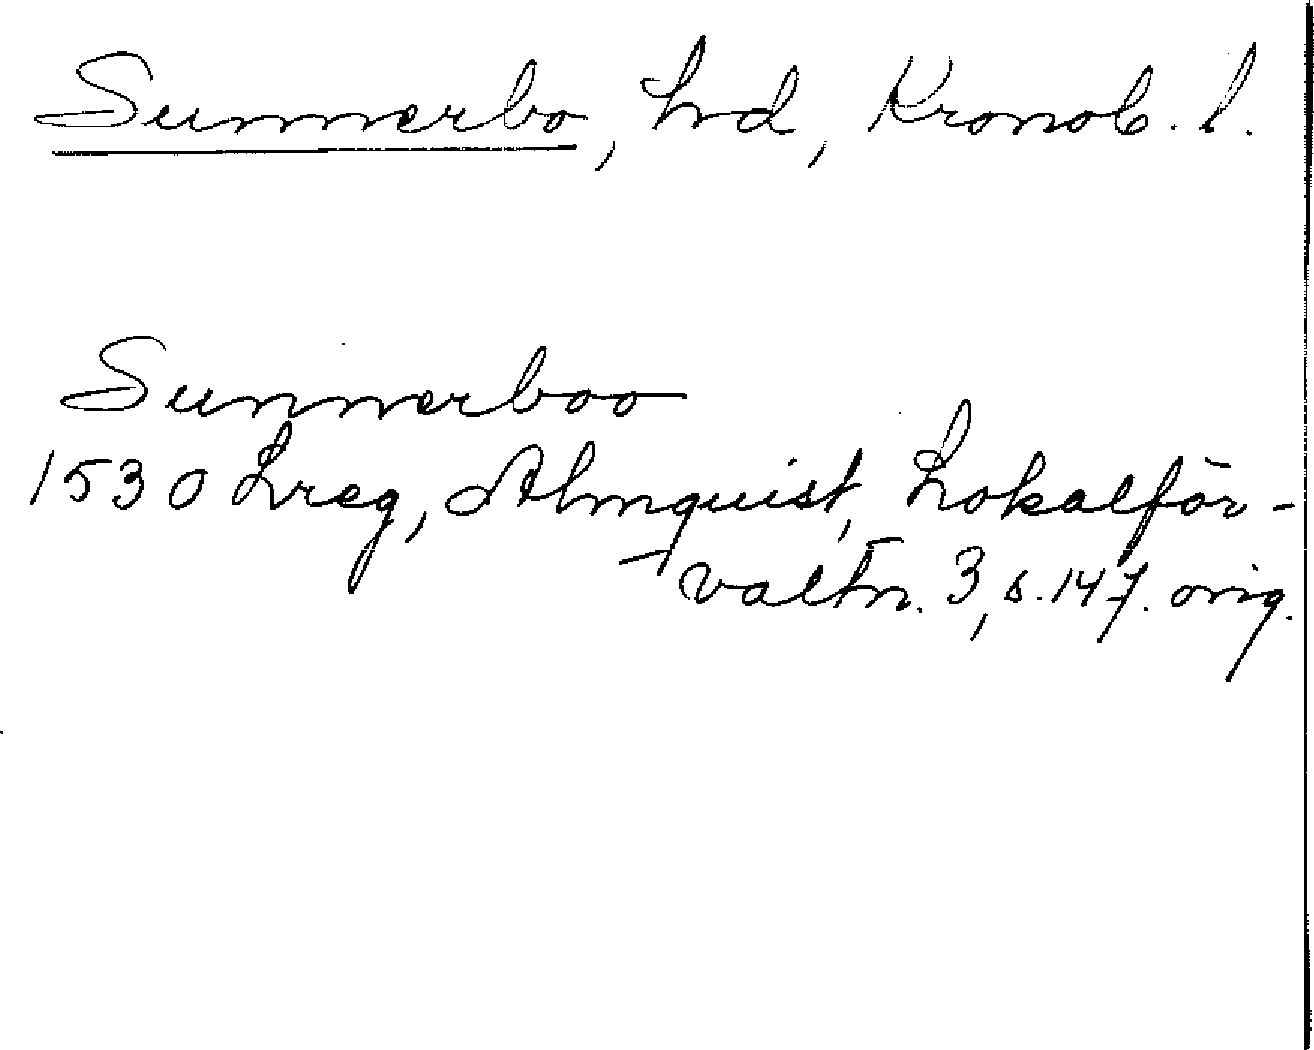 Sunnerbo, hrd, Kronob. l.
Sunnerboo
1530 Lreg, Almquist, Lokalför-
valtn. 3, s. 147. orig.